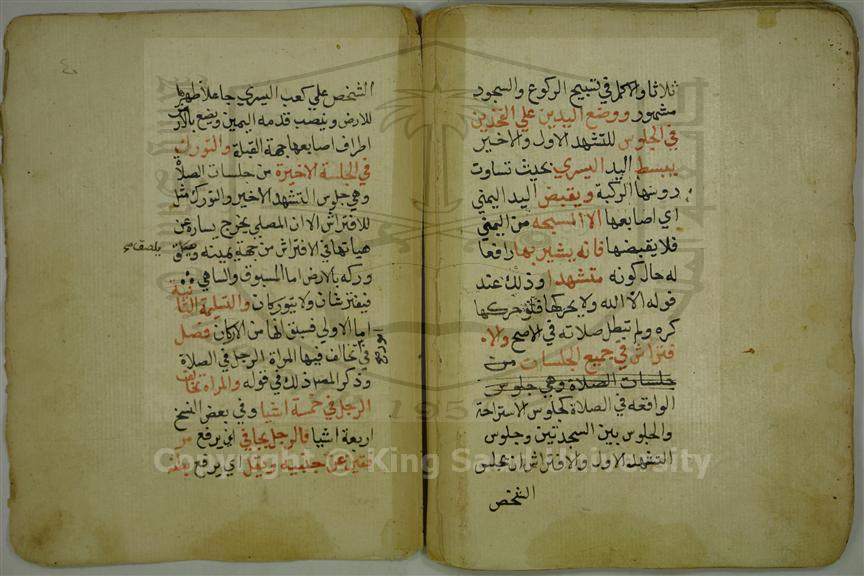 ثلاثا والاكمل في تسبيح الركوع والسجود
مشهور ووضع اليدين علي الفخذين
في الجلوس للتشهد الاول والاخير
يبسط اليد اليسري بحيث تساوت
روسها الركبة ويقبض اليد اليمني
اي اصابعها الا المسبحه من اليمني
فلا يقبضها فانه يشير بها رافعا
له حال كونه متشهدا وذلك عند
قوله الا الله ولا يحركها فلو حركها
كره ولم تبطل صلاته في الاصح والا
فتراش في جميع الجلسات من
جلسات الصلاة وهي جلوس
الواقعه في الصلاة كجلوس الاستراحة
والجلوس بين السجدتين وجلوس
التشهد الاول والافتراش ان يجلس
الشخص
٤٠
الشخص علي كعب اليسري جاعلا ظهرها
للارض وينصب قدمه اليمين ويضع بالارض
اطراف اصابعها جهة القبلة والتورك
في الجلسة الاخيرة من جلسات الصلاة
وهي جلوس التشهد الاخير والتورك مثل
للافتراش الا ان المصلي يخرج يساره عن
هياتها في الافتراش من جهة يمينه
يلصق
وركه بالارض اما المسبوق والساهي
فيفترشان ولا يتوركان والتسليمة الثانية
اما الاولي فسبق انها من الاركان فصل
في تخالف فيها المراة الرجل في الصلاة
وذكر المص ذلك في قوله والمراة تخالف
الرجل في خمسة اشيا وفي بعض النسخ
اربعة اشيا فالرجل يجافي اي يرفع مر
فقيه عن جنبيه ويقل اي يرفع بطنه
Copyright © King Saud University
1957